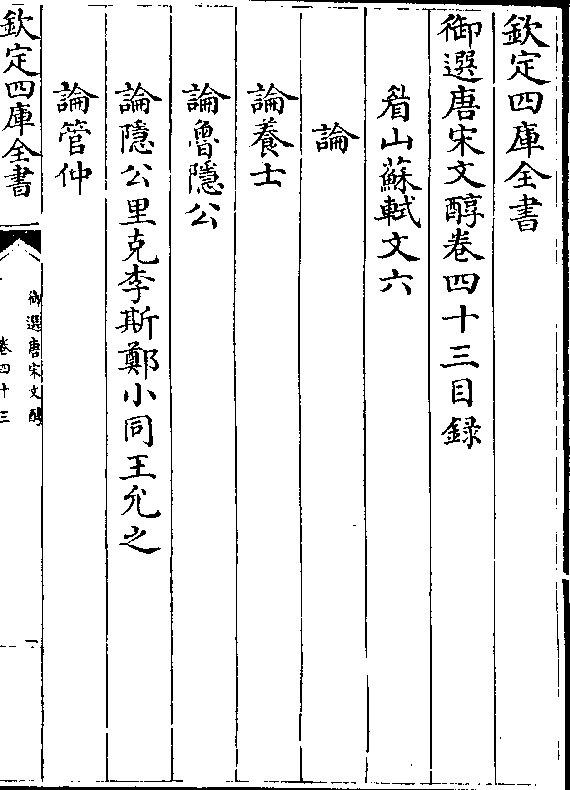 欽定四庫全書
御選唐宋文醇卷四十三目録
眉山蘇軾文六
論
論養士
論魯隱公
論隱公里克李斯鄭小同王允之
論管仲
欽定四庫全書
御選唐宋文醇
卷四十三
一